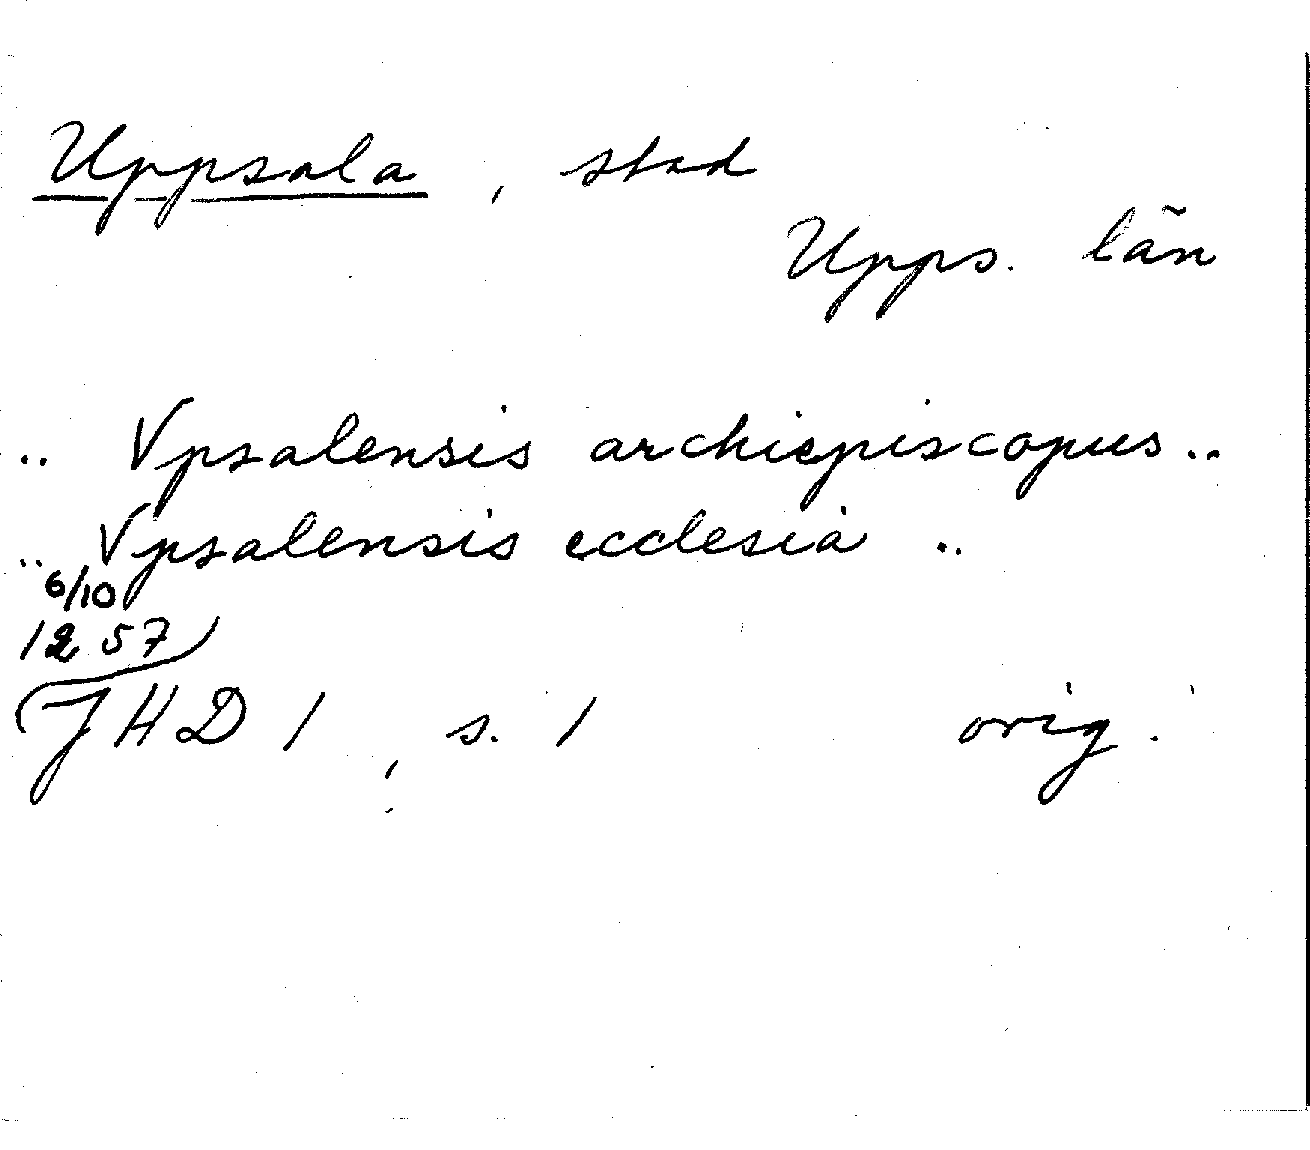 Uppsala, stad
Upps. län
.. Vpsalensis archiepiscopus ..
.. Vpsalensis ecclesia ..
6/10
1257
JHD 1, s. 1 orig.